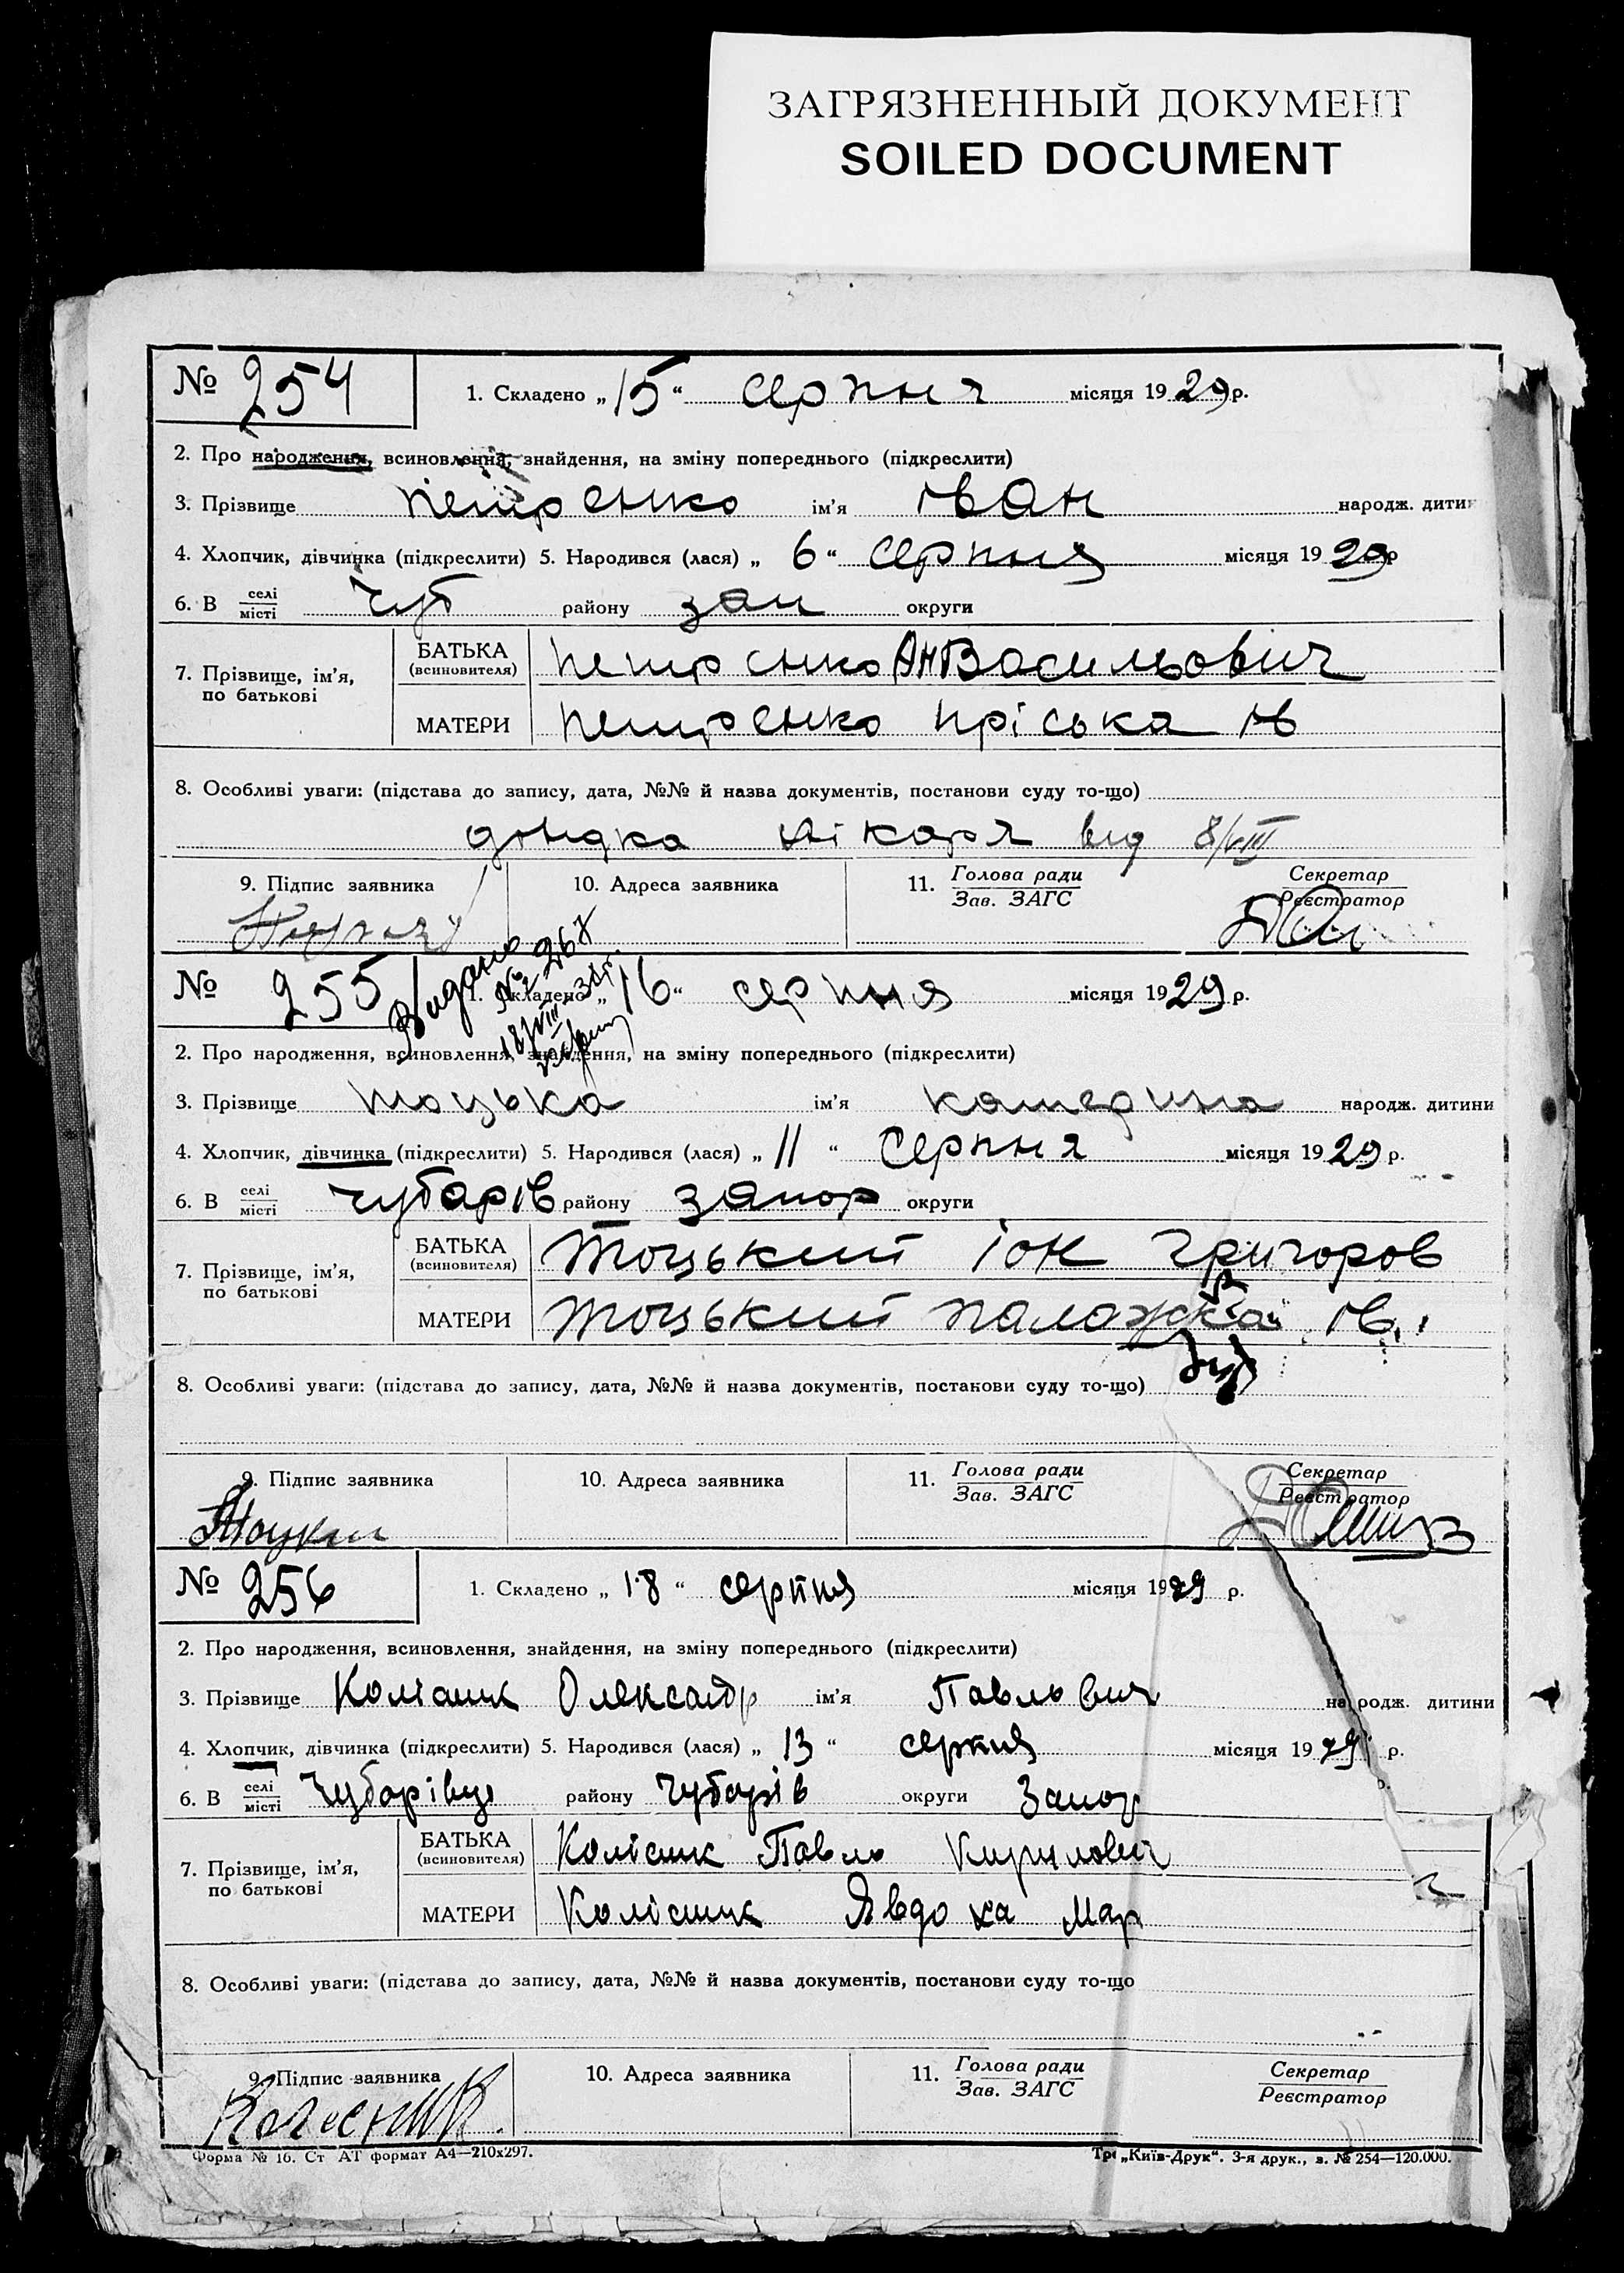 ЗАГРЯЗНЕННЫЙ ДОКУМЕНТ
SOILED DOCUMENT
№ 254 1. Складено „ 15 “ серпня місяця 1929 р.
2. Про народження, всиновлення, знайдення, на зміну попереднього (підкреслити)
3. Прізвище Петренко ім’я Іван народж. дити
4. Хлопчик, дівчинка (підкреслити) 5. Народився (лася) „ 6 “ серпня місяця 1929 р
6. В селі місті Чуб району Зап округи
7. Прізвище, ім’я, по батькові
БАТЬКА (всиновителя) Петренко Ан Васильович
МАТЕРИ Петренко Пріська Ів
8. Особливі уваги: (підстава до запису, дата, №№ й назва документів, постанови суду то-що)
лікаря від 8/VIII
9. Підпис заявника 10. Адреса заявника 11. Голова ради Зав. ЗАГС Секретар Реєстратор
№ 255 1. Складено „ 16 “ серпня місяця 1929 р.
Видано № 267
18/VIII
2. Про народження, всиновлення, знайдення, на зміну попереднього (підкреслити)
3. Прізвище Тоцька ім’я Катерина народж. дитини
4. Хлопчик, дівчинка (підкреслити) 5. Народився (лася) „ 11 “ серпня місяця 1929 р.
6. В селі місті Чубарів району Запор округи
7. Прізвище, ім’я, по батькові
БАТЬКА (всиновителя) Тоцький Іон Григоров
МАТЕРИ Тоцький Палажка Ів.
8. Особливі уваги: (підстава до запису, дата, №№ й назва документів, постанови суду то-що)
9. Підпис заявника 10. Адреса заявника 11. Голова ради Зав. ЗАГС Секретар Реєстратор
№ 256 1. Складено „ 18 “ серпня місяця 1929 р.
2. Про народження, всиновлення, знайдення, на зміну попереднього (підкреслити)
3. Прізвище Колісник Олександр ім’я Павлович народж. дитини
4. Хлопчик, дівчинка (підкреслити) 5. Народився (лася) „ 13 “ серпня місяця 1929 р.
6. В селі місті Чубарівці району Чубарів округи Запор
7. Прізвище, ім’я, по батькові
БАТЬКА (всиновителя) Колісник Павло Кирилович
МАТЕРИ Колісник Явдоха Мар
8. Особливі уваги: (підстава до запису, дата, №№ й назва документів, постанови суду то-що
9. Підпис заявника 10. Адреса заявника 11. Голова ради Зав. ЗАГС Секретар Реєстратор
Колесник
Форма № 16. Ст АТ формат А4—210х297. „Київ-Друк“. 3-я друк., з. № 254—120.000.